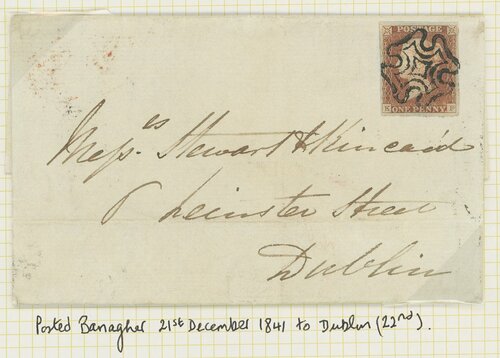 POSTAGE
K E
ONE PENNY
Mess.es Stewart & Kincaid
6 Leinster Street
Dublin
Posted Banagher 21st December 1841 to Dublin (22nd).